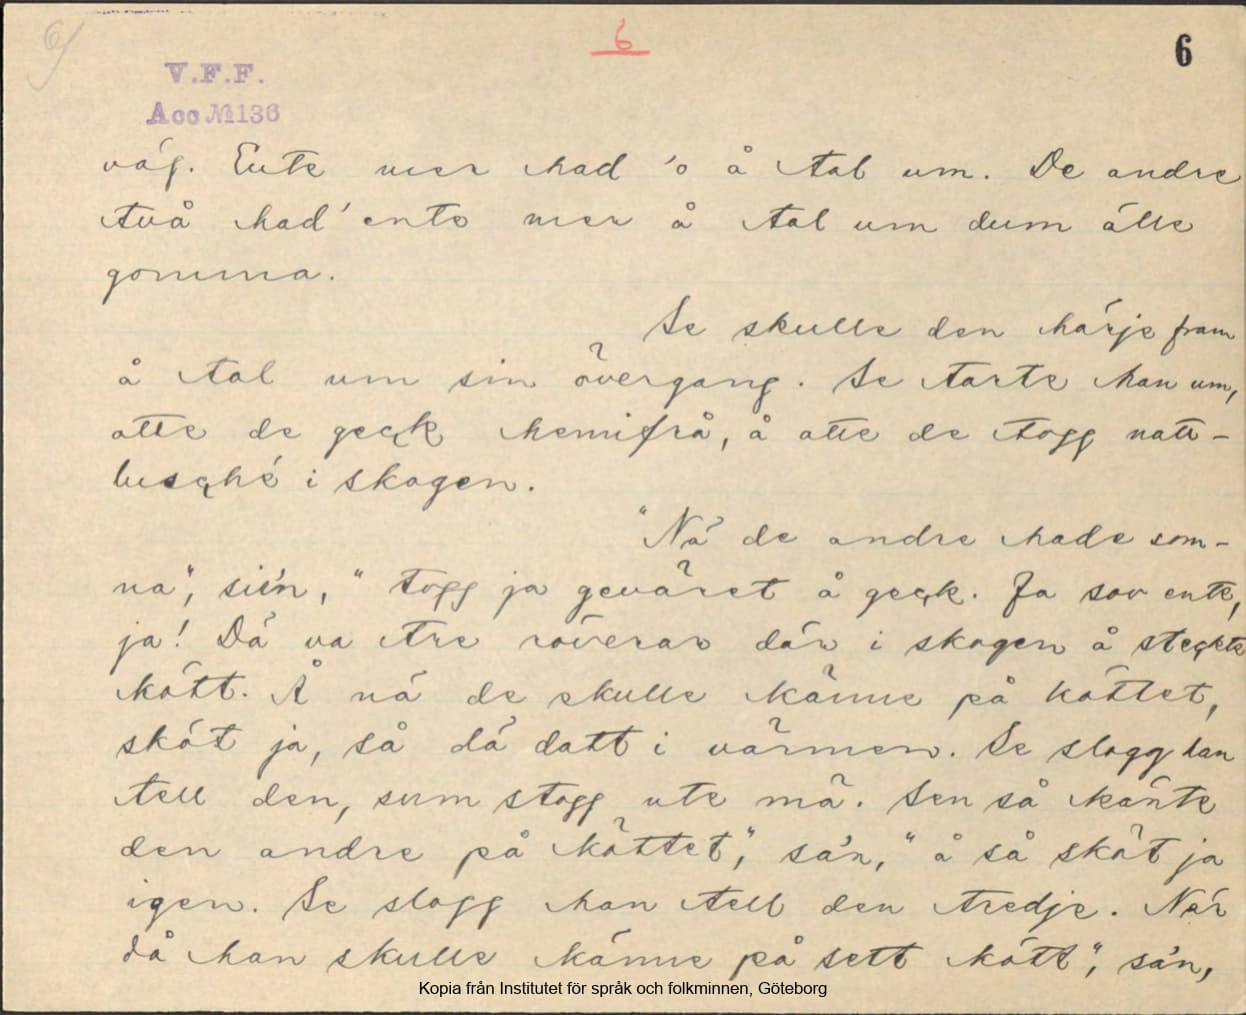 6
6
6
V.F.F.
Acc № 136
väg. Ente mer had 'o å tal um. De andre
två had' ente mer å tal um dum älle
gomma.
Se skulle den härje fram
å tal um sin övergang. Se tarte han um,
atte de geçk hemifrå, å atte de togg natt-
lusçhé i skogen.
"Nä de andre hade som-
na", sie'n, "togg ja geväret å geçk. Ja sov ente,
ja! Dä va tre röverar där i skogen å steçkte
kött. Å nä de skulle känne på köttet,
sköt ja, så dä datt i värmen. Se slogg han
tell den, sum stogg ute mä. Sen så känte
den andre på köttet", sa'n, "å så sköt ja
igen. Se slogg han tell den tredje. När
då han skulle känne på sett kött", sa'n,
Kopia från Institutet för språk och folkminnen, Göteborg